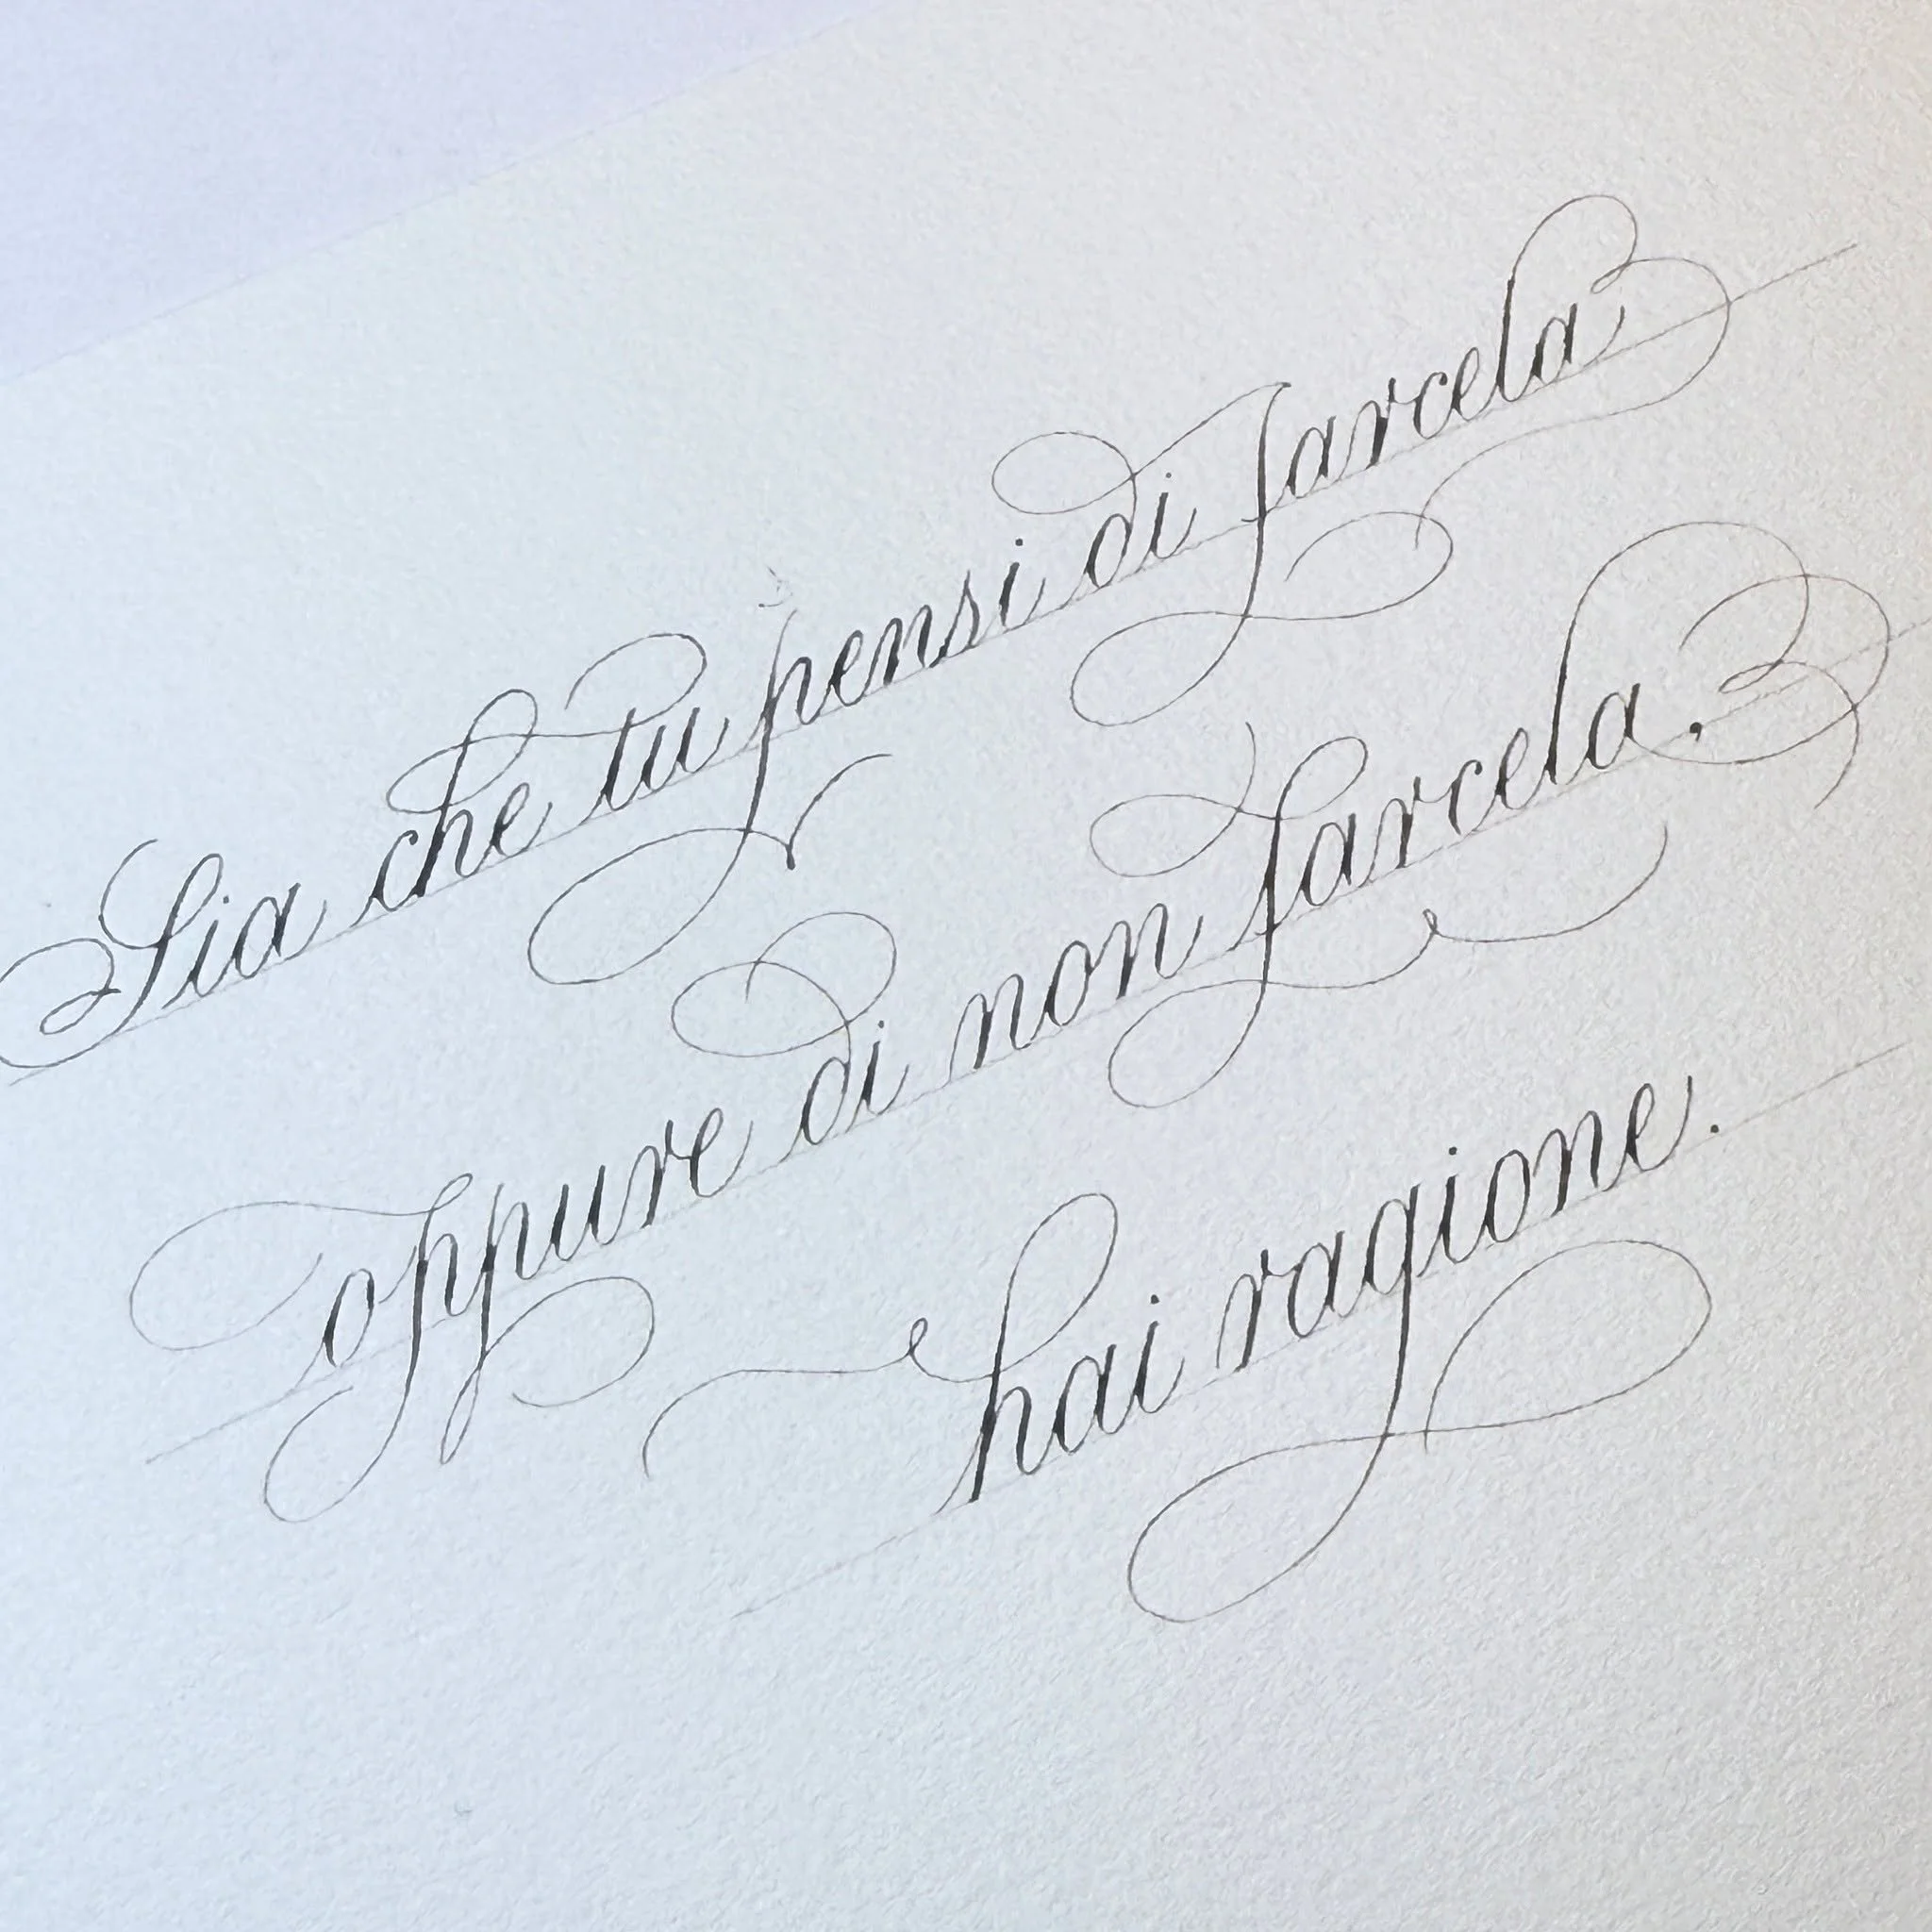 Sia che tu pensi di farcela
oppure di non farcela.
hai ragione.